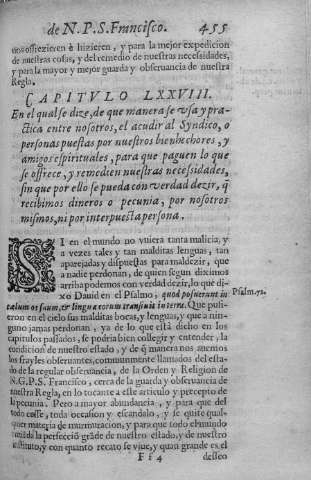 de N.P.S. Francisco. 455
nos ofrezieren è hizieren, y para la mejor expedicion
de nuestras cosas, y del remedio de nuestras necessidades,
y para la mayor y mejor guarda y obseruancia de nuestra
Regla.
CAPITVLO LXXVIII.
En el qual se dize, de que manera se vsa y pra-
ctica entre nosotros, el acudir al Syndico, o
personas puestas por nuestros bienhechores, y
amigos espirituales, para que paguen lo que
se offrece, y remedien nuestras necessidades,
sin que por ello se pueda con verdad dezir, q̃
recibimos dineros o pecunia, por nosotros
mismos, ni por interpuesta persona.
SI en el mundo no vuiera tanta malicia, y
a vezes tales y tan malditas lenguas, tan
aparejadas y dispuestas para maldezir, que
a nadie perdonan, de quien segun diximos
arriba podemos con verdad dezir, lo que di-
xo Dauid en el Psalmo, quod posuerunt in
Psalm.72.
cœlum os suum, & lingua eorum transiuit in terra. Que pusi-
eron en el cielo sus malditas bocas, y lenguas, y que a nin-
guno jamas perdonan, ya de lo que està dicho en los
capitulos passados, se podria bien collegir y entender, la
condicion de nuestro estado, y de q̃ manera nos auemos
los frayles obseruantes, communmente llamados del esta-
do de la regular obseruancia, de la Orden y Religion de
N.G.P.S. Francisco, cerca de la guarda y obseruancia de
nuestra Regla, en lo tocante a este articulo y precepto de
la pecunia. Pero a mayor abundancia, y para que del
todo cesse, toda occasion y escandalo, y se quite qual-
quer materia de murmuracion, y para que todo el mundo
entienda la perfecciõ grãde de nuestro estado, y de nuestro
instituto, y con quanto recato se viue, y quan grande es el
Ff 4 desseo